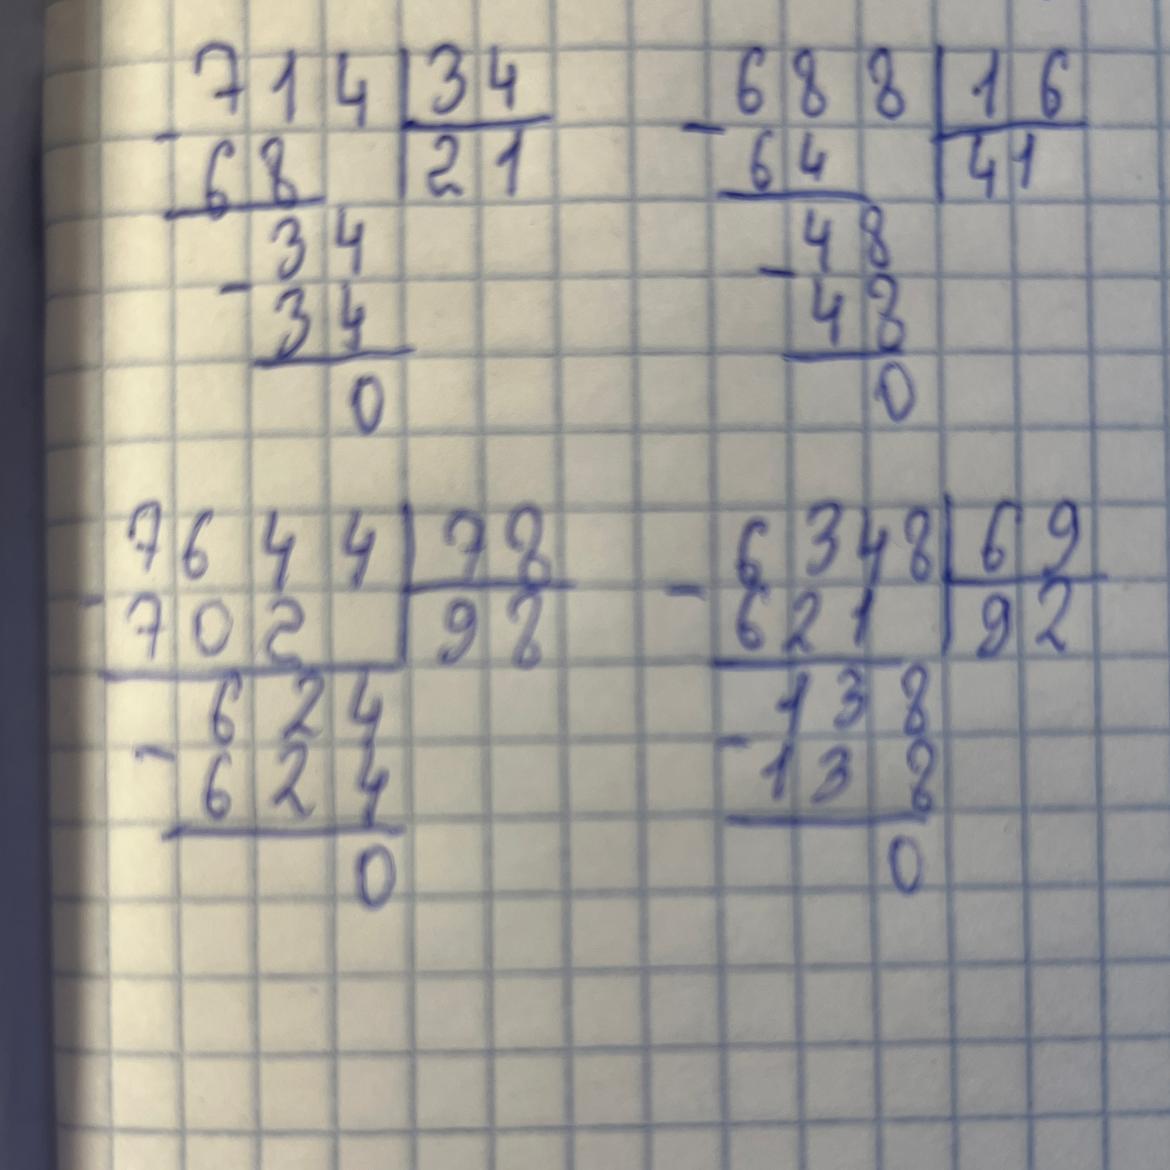 714 34
- 68 21
34
- 34
0
688 16
- 64 41
48
- 48
0
7644 78
- 702 98
624
- 624
0
6348 69
- 621 92
138
- 138
0